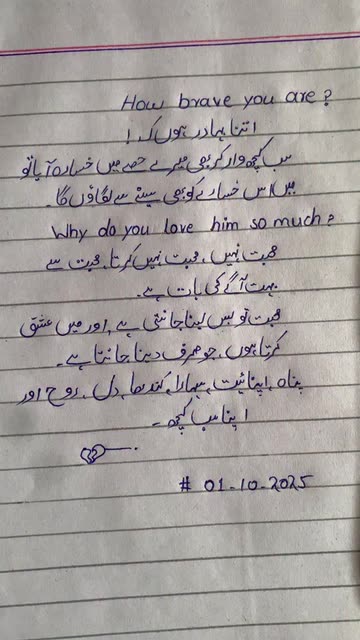 How brave you are?
اتنا بہادر ہوں کہ !
سب کچھ وار کر بھی میرے حصے میں خسارہ آیا تو
میں اس خسارے کو بھی سینے سے لگاؤں گا۔
Why do you love him so much?
محبت نہیں، محبت نہیں کرتا، محبت سے
بہت آگے کی بات ہے۔
محبت تو بس لینا جانتی ہے، اور میں عشق
کرتا ہوں، جو صرف دینا جانتا ہے۔
پناہ، اپنائیت، سہارا، کندھا، دل، روح اور
اپنا سب کچھ ۔
# 01-10-2025